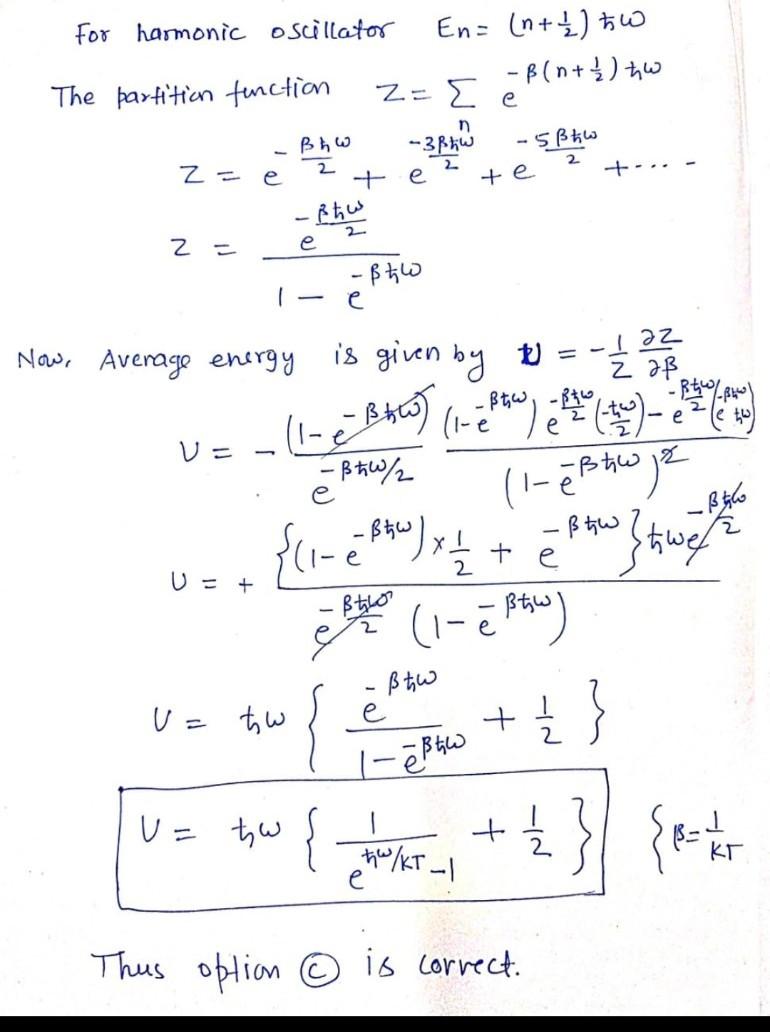 For harmonic oscillator En = (n+½) ħω
The partition function Z = Σ_n e^{-β(n+½)ħω}
Z = e^{-βħω/2} + e^{-3βħω/2} + e^{-5βħω/2} + ....-
Z = e^{-βħω/2} / (1 - e^{-βħω})
Now, Average energy is given by U = -1/Z ∂Z/∂β
U = - (1-e^{-βħω}) / e^{-βħω/2} · [(1-e^{-βħω}) e^{-βħω/2} (-ħω/2) - e^{-βħω/2} (e^{-βħω} ħω)] / (1-e^{-βħω})^2
U = + {(1-e^{-βħω}) × 1/2 + e^{-βħω}} ħω e^{-βħω/2} / e^{-βħω/2} (1-e^{-βħω})
U = ħω { e^{-βħω} / (1-e^{-βħω}) + 1/2 }
U = ħω { 1 / (e^{ħω/KT} -1) + 1/2 } { β = 1/KT
Thus option ⓒ is correct.